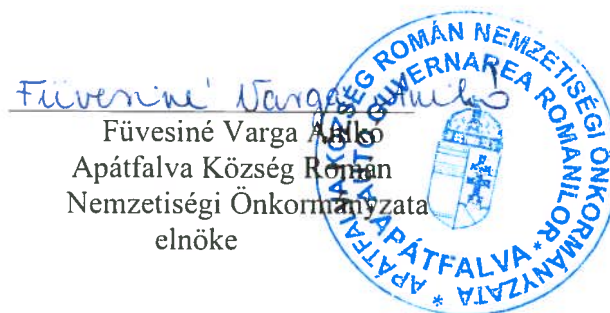 Füvesiné Varga Anikó
Füvesiné Varga Anikó
Apátfalva Község Román
Nemzetiségi Önkormányzata
elnöke
* APÁTFALVA KÖZSÉG ROMÁN NEMZETISÉGI ÖNKORMÁNYZATA
AUTOGUVERNAREA ROMANILOR
* APÁTFALVA *